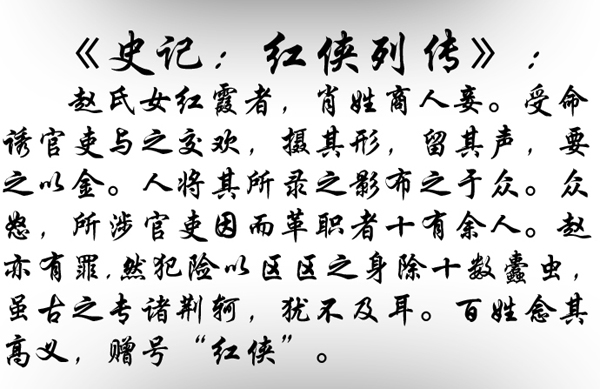 《史记：红侠列传》：
赵氏女红霞者，肖姓商人妾。受命
诱官吏与之交欢，摄其形，留其声，要
之以金。人将其所录之影布之于众。众
怒，所涉官吏因而革职者十有余人。赵
亦有罪,然犯险以区区之身除十数蠹虫，
虽古之专诸荆轲，犹不及耳。百姓念其
高义，赠号“红侠”。